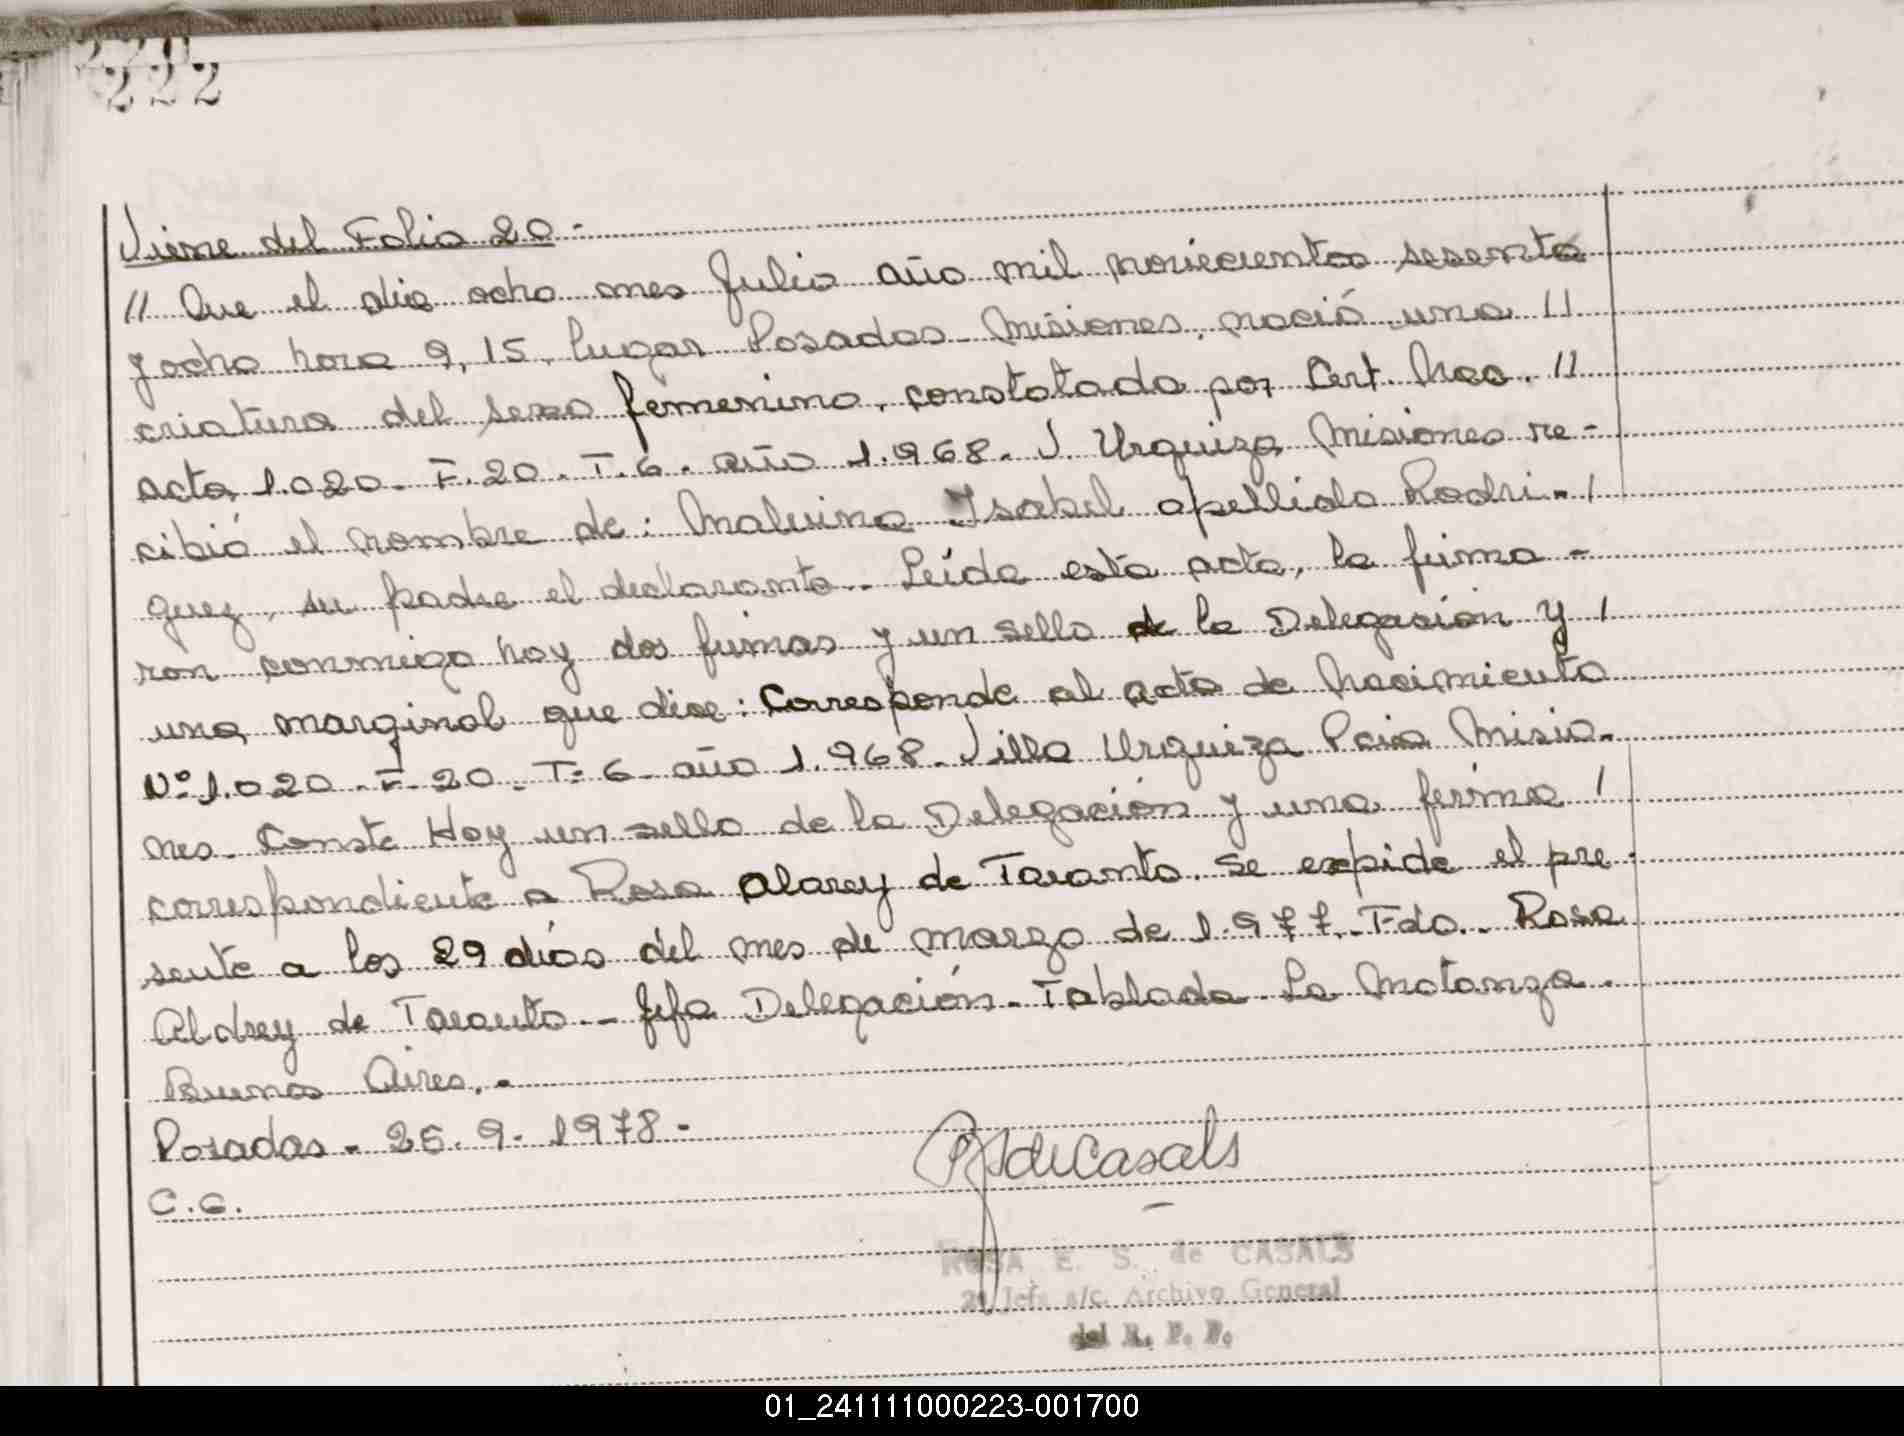 222
Viene del Folio 20.-
// Que el día ocho mes Julio año mil novecientos sesenta
y ocho hora 9,15, lugar Posadas - Misiones, nació una //
criatura del sexo femenino, constatada por Cert. Nac. //
acta 1.020 - F. 20 - T. 6 - año 1.968 - V. Urquiza Misiones re-
cibió el nombre de: Malvina Isabel apellido Rodri- /
guez, su padre el declarante.- Leída esta acta, la firma -
ron conmigo hay dos firmas y un sello de la Delegación y /
una marginal que dice: Corresponde al acta de Nacimiento
Nº 1.020 - F - 20 - T= 6 - año 1.968 - Villa Urquiza Pcia Misio-
nes - Conste Hay un sello de la Delegación y una firma /
correspondiente a Rosa Alarey de Taranto. Se expide el pre -
sente a los 29 días del mes de marzo de 1.977.- Fdo.- Rosa
Aldrey de Taranto.- Jefa Delegación - Tablada - La Matanza -
Buenos Aires.-
Posadas - 25 - 9 - 1978 -
C.G.
RSdeCasals
ROSA E. S. de CASALS
2ª Jefa a/c. Archivo General
del R. P. P.
01_241111000223-001700